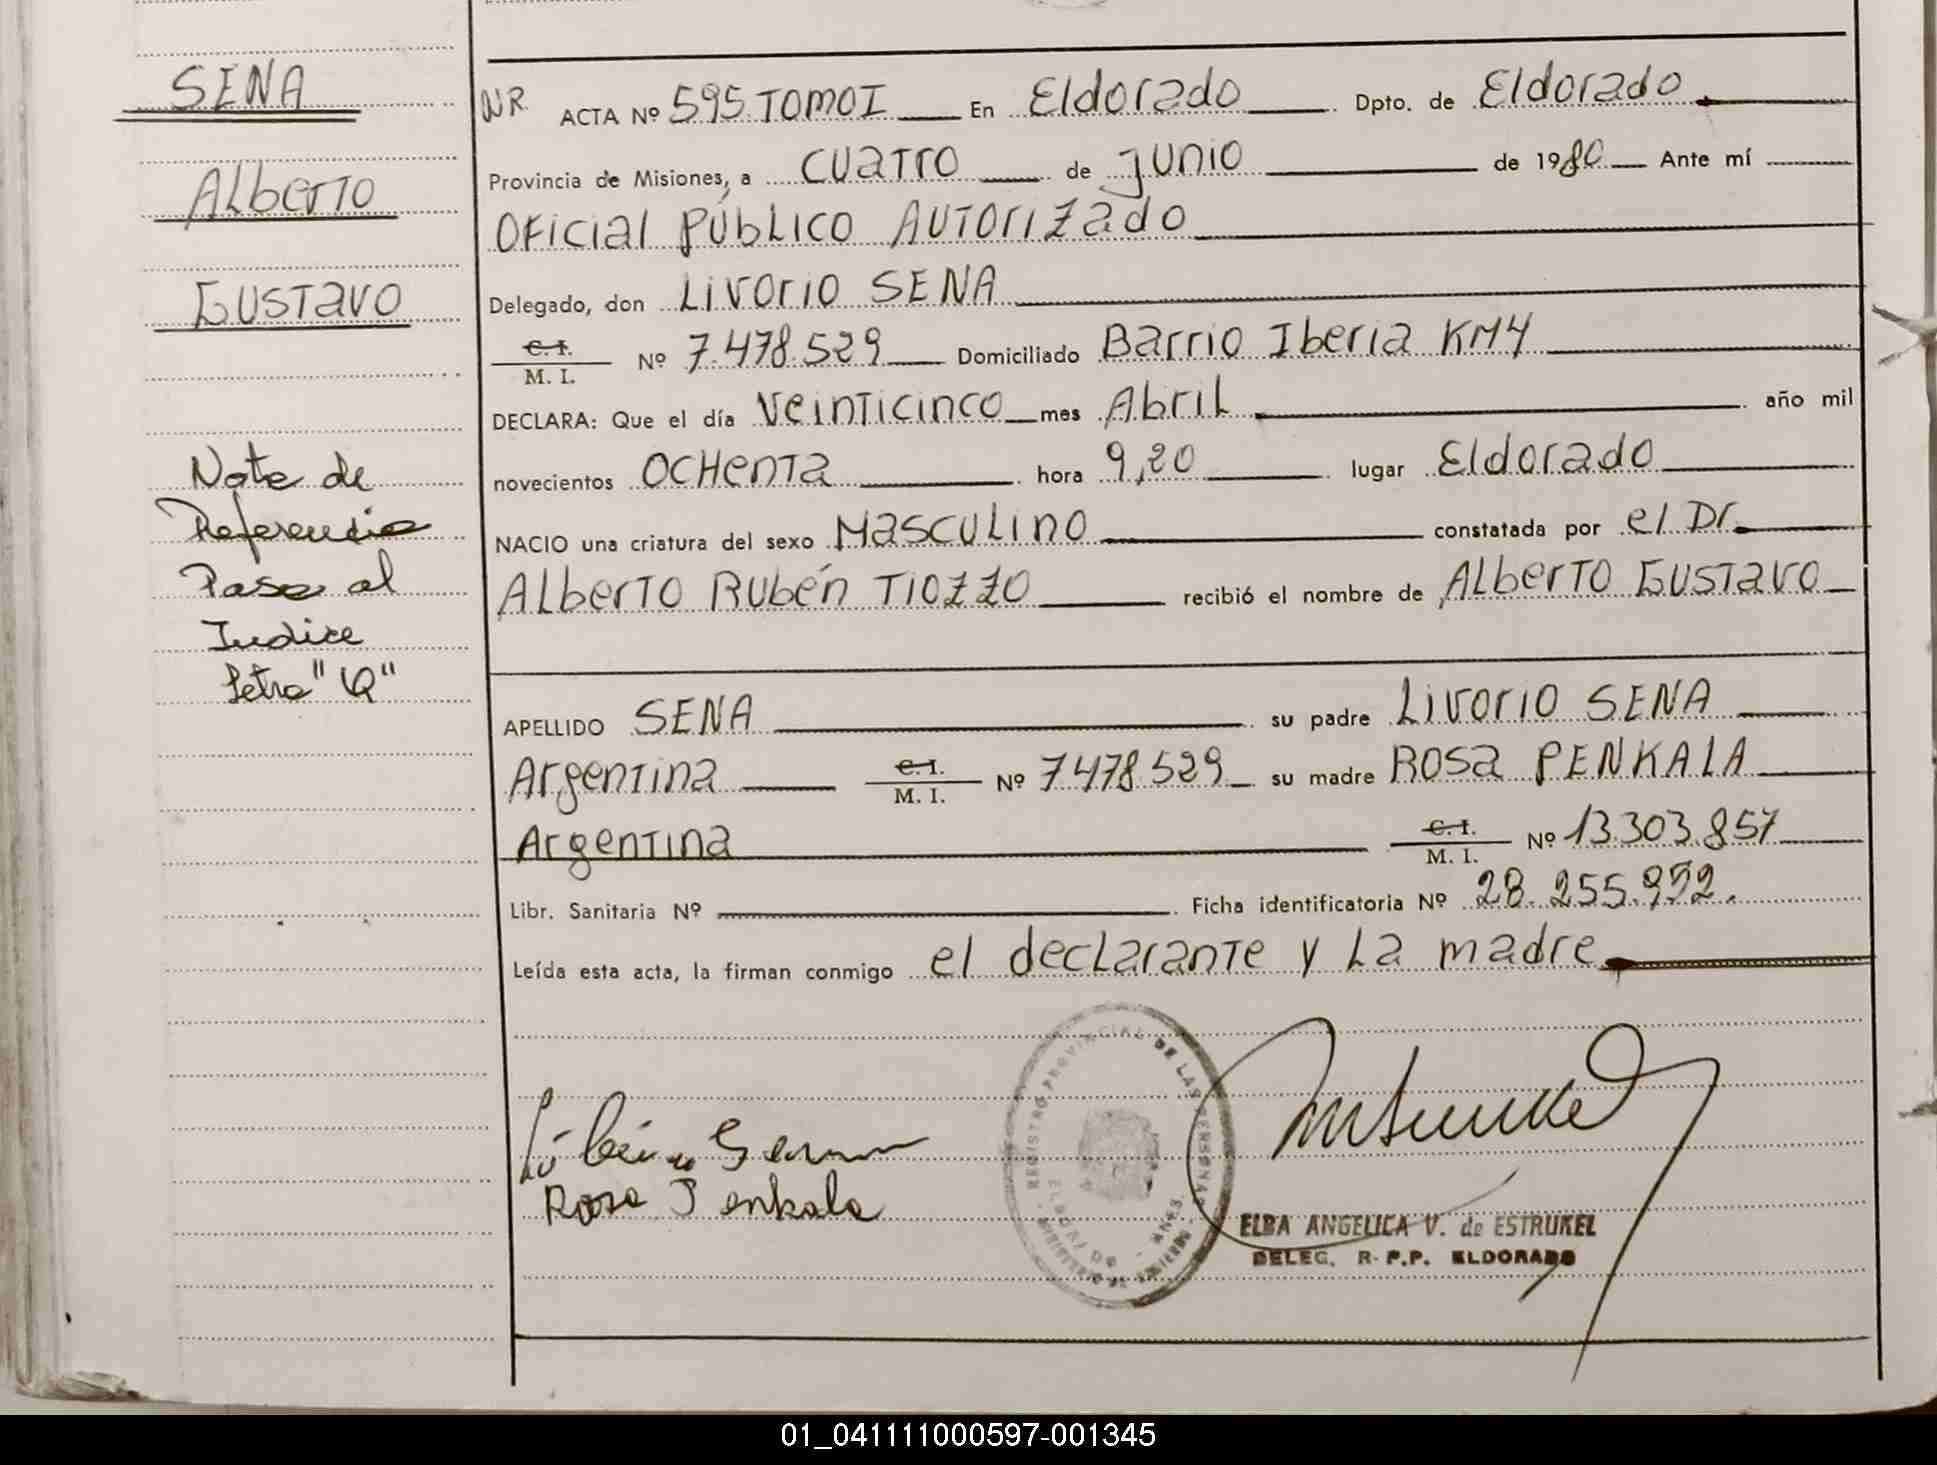 SENA
Alberto
Gustavo
Note de
Referencia
Pase al
Indice
letra "Q"
NR ACTA Nº 595 TOMO I En Eldorado Dpto. de Eldorado
Provincia de Misiones, a cuatro de junio de 1980 Ante mí
Oficial Público Autorizado
Delegado, don Livorio SENA
C. I. M. I. Nº 7.478.529 Domiciliado Barrio Iberia KM4
DECLARA: Que el día veinticinco mes Abril año mil
novecientos ochenta hora 9,20 lugar Eldorado
NACIO una criatura del sexo Masculino constatada por el Dr.
Alberto Rubén Tiozzo recibió el nombre de Alberto Gustavo
APELLIDO SENA su padre Livorio SENA
Argentina C. I. M. I. Nº 7.478.529 su madre Rosa PENKALA
Argentina C. I. M. I. Nº 13.303.857
Libr. Sanitaria Nº Ficha identificatoria Nº 28.255.972.
Leída esta acta, la firman conmigo el declarante y la madre
Rosa Penkala
REGISTRO PROVINCIAL DE LAS PERSONAS
ELDORADO - MNES.
MINISTERIO DE GOBIERNO
ELBA ANGELICA V. de ESTRUKEL
DELEG. R. P.P. ELDORADO
01_041111000597-001345